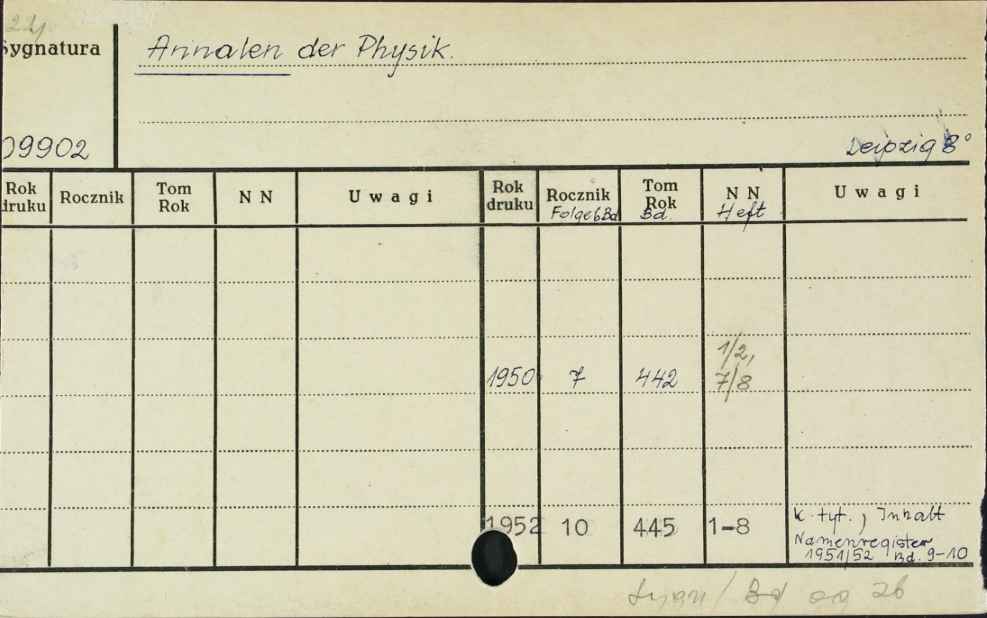 Sygnatura
Annalen der Physik.
09902
Leipzig 8°
Rok druku Rocznik Tom Rok N N Uwagi Rok druku Rocznik Folge 6 Bd Tom Rok Bd. N N Heft Uwagi
1950 7 442 1/2, 7/8
1952 10 445 1-8 k. tyt., Inhalt
Namenregister
1951/52 Bd. 9-10